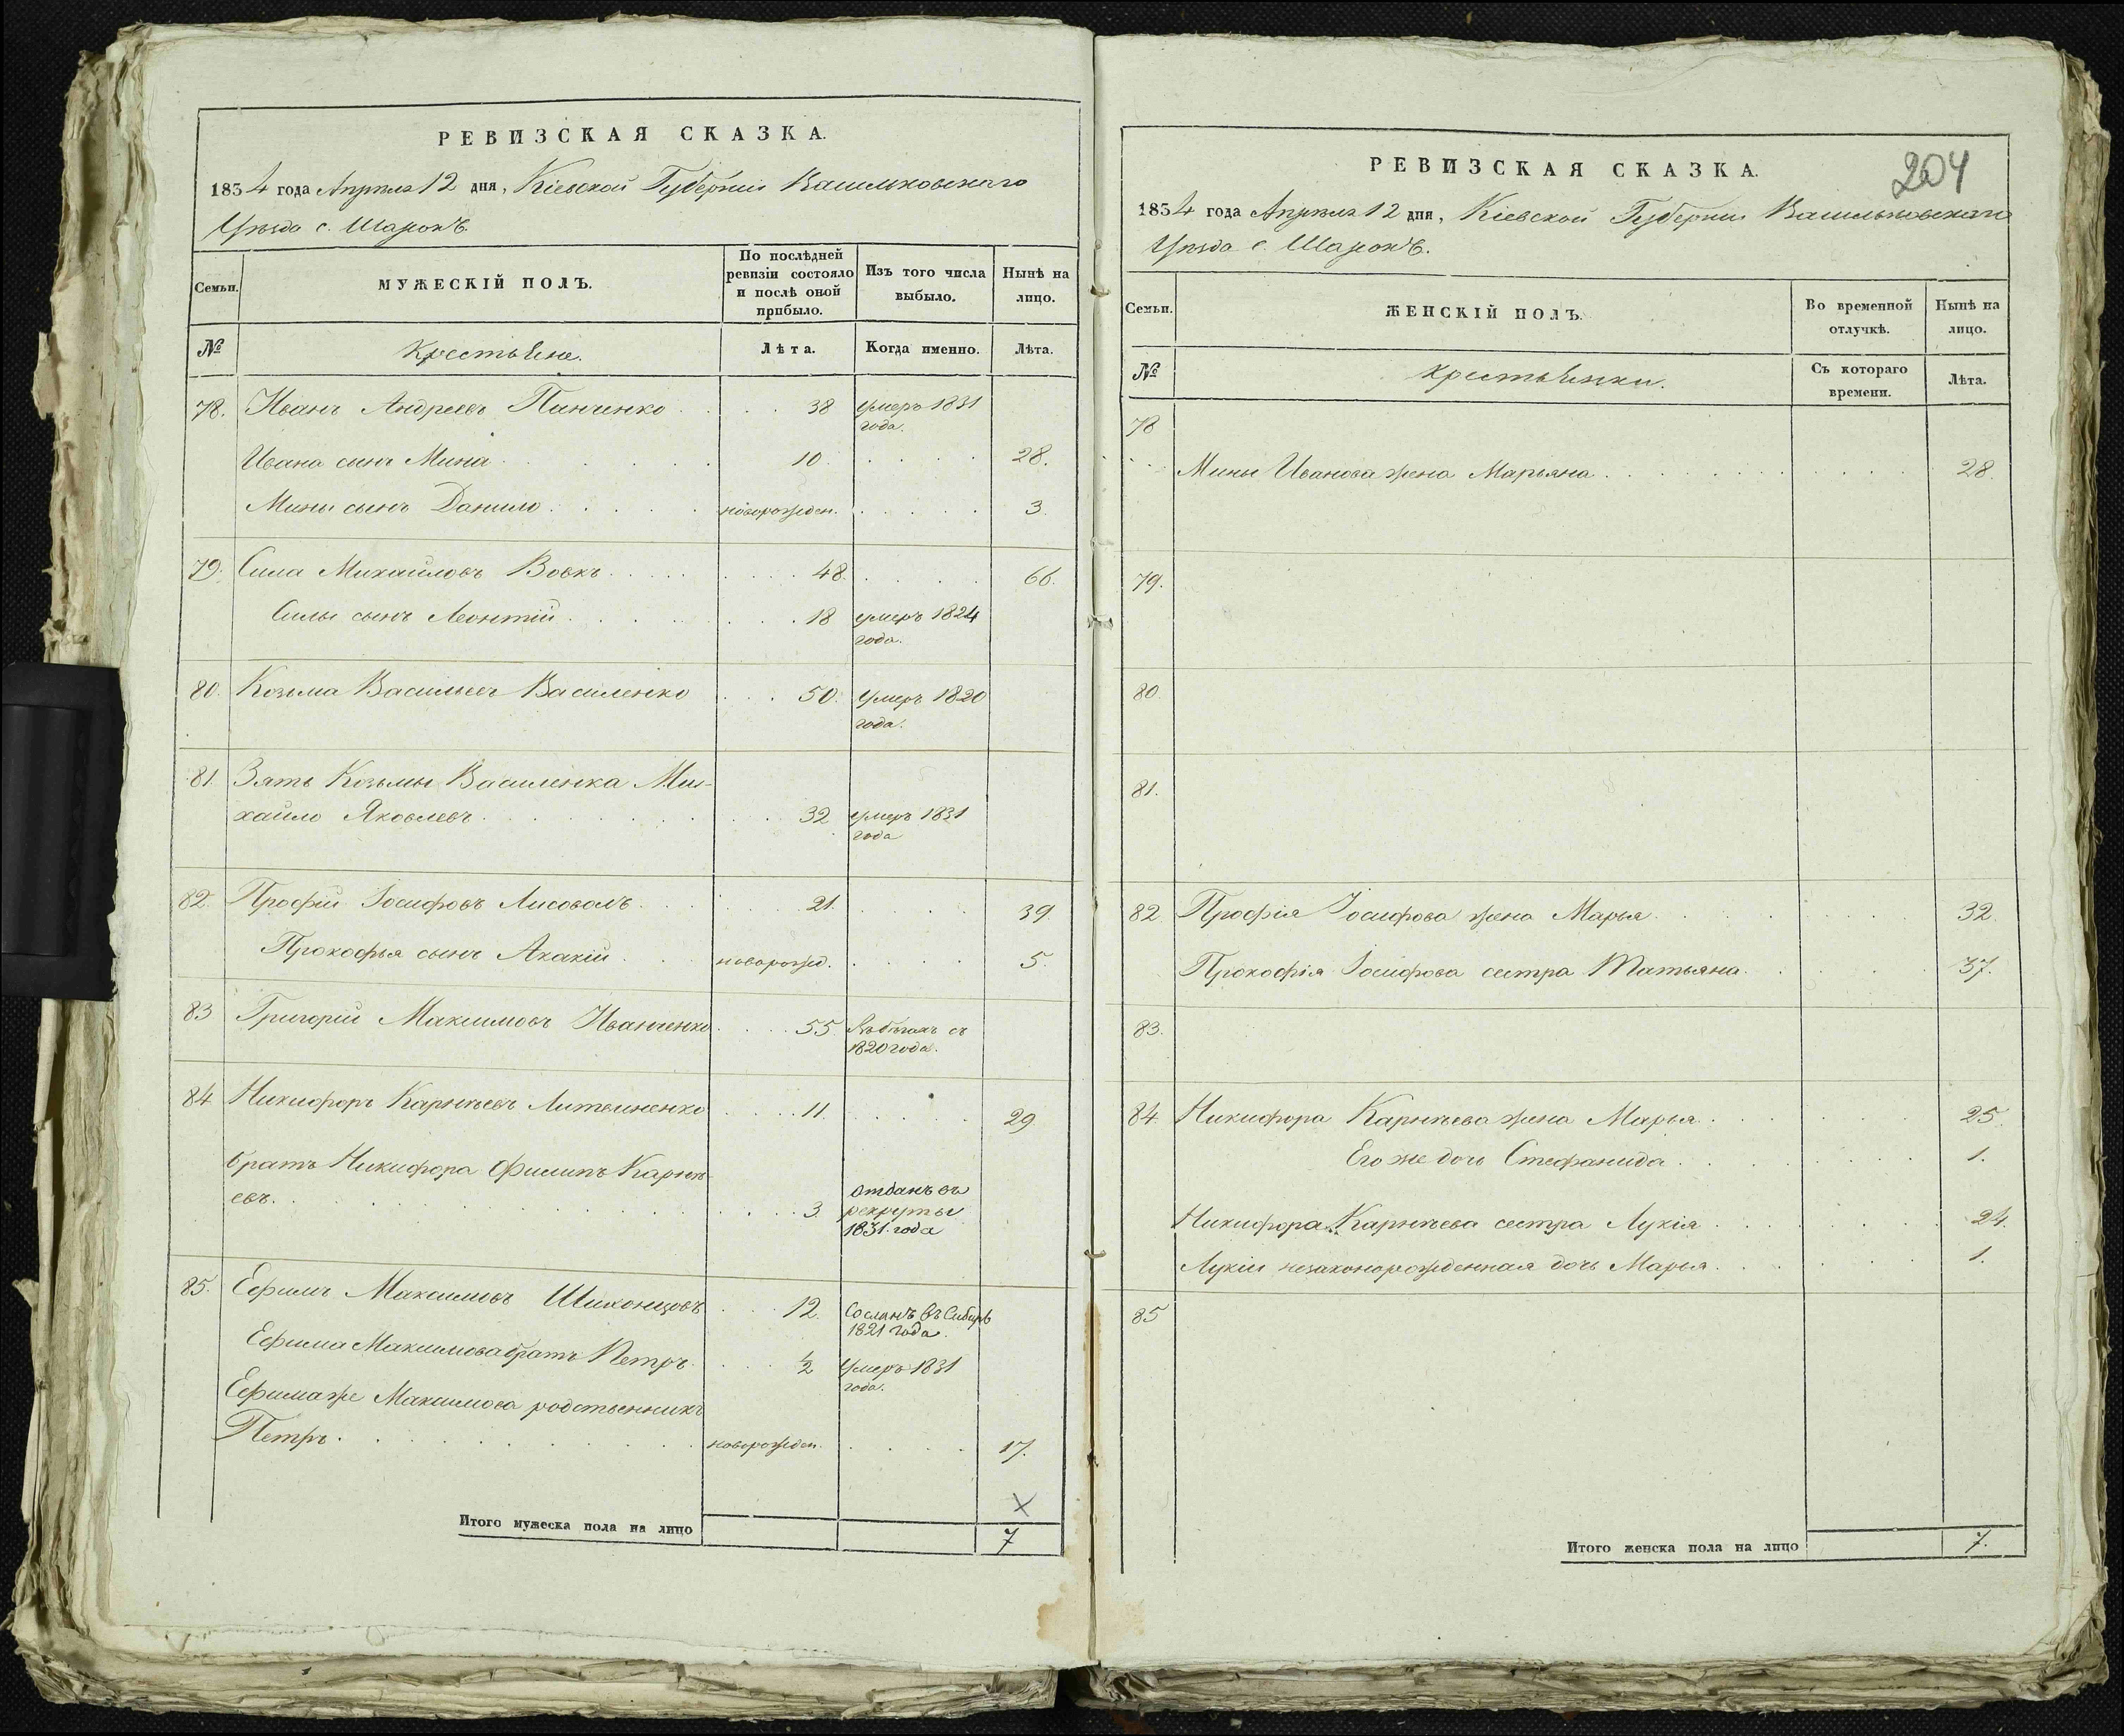 РЕВИЗСКАЯ СКАЗКА.
1834 года Апреля 12 дня, Кіевской Губерніи Васильковскаго
Уѣзда с. Шарокъ.
Семьи.
МУЖЕСКІЙ ПОЛЪ.
По послѣдней ревизіи состояло и послѣ оной прибыло.
Изъ того числа выбыло.
Нынѣ на лицо.
№
Крестьяне.
Лѣта.
Когда именно.
Лѣта.
78. Иванъ Андреевъ Панченко 38 умеръ 1831 года.
Ивана сынъ Мина 10 28.
Мины сынъ Данило новорожден. 3.
79. Сила Михайловъ Вовкъ 48. 66.
Силы сынъ Леонтій 18 умеръ 1824 года.
80. Козьма Васильевъ Василенко 50. умеръ 1820 года.
81. Зять Козьмы Василенка Ми-
хайло Яковлевъ 32 умеръ 1831 года
82. Профій Іосифовъ Лисоволъ 21. 39.
Прокофья сынъ Акакій новорожд. 5.
83 Григорій Максимовъ Иванченко 55 въ бѣгахъ съ 1820 года.
84 Никифоръ Карнѣевъ Литвиненко 11. 29.
братъ Никифора Филипъ Карнѣ-
евъ 3. отданъ въ рекруты 1831 года
85. Ефимъ Максимовъ Шихонцовъ 12. Сосланъ въ Сибирь 1821 года.
Ефима Максимова братъ Петръ ½ умеръ 1831 года.
Ефима же Максимова родственникъ
Петръ новорожден. 17.
Итого мужеска пола на лицо 7
204
РЕВИЗСКАЯ СКАЗКА.
1834 года Апреля 12 дня, Кіевской Губерніи Васильковскаго
Уѣзда с. Шарокъ.
Семьи.
ЖЕНСКІЙ ПОЛЪ.
Во временной отлучкѣ.
Нынѣ на лицо.
№
Крестьянки.
Съ котораго времени.
Лѣта.
78
Мины Иванова жена Марьяна 28.
79.
80.
81.
82. Профія Іосифова жена Марья 32.
Прокофія Іосифова сестра Татьяна 37.
83.
84. Никифора Карнѣева жена Марья 25.
Его же дочь Стефанида 1.
Никифора Карнѣева сестра Лукія 24.
Лукіи незаконорожденная дочь Марья 1.
85
Итого женска пола на лицо 7.